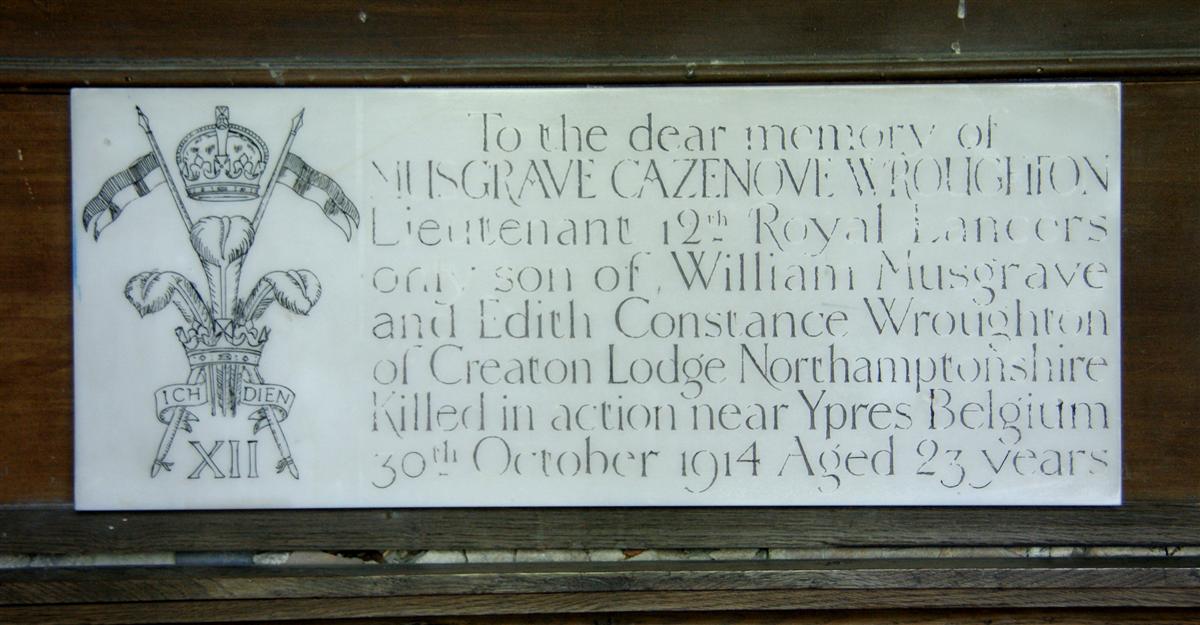 ICH DIEN
XII
To the dear memory of
MUSGRAVE CAZENOVE WROUGHTON
Lieutenant 12th Royal Lancers
only son of William Musgrave
and Edith Constance Wroughton
of Creaton Lodge Northamptonshire
Killed in action near Ypres Belgium
30th October 1914 Aged 23 years